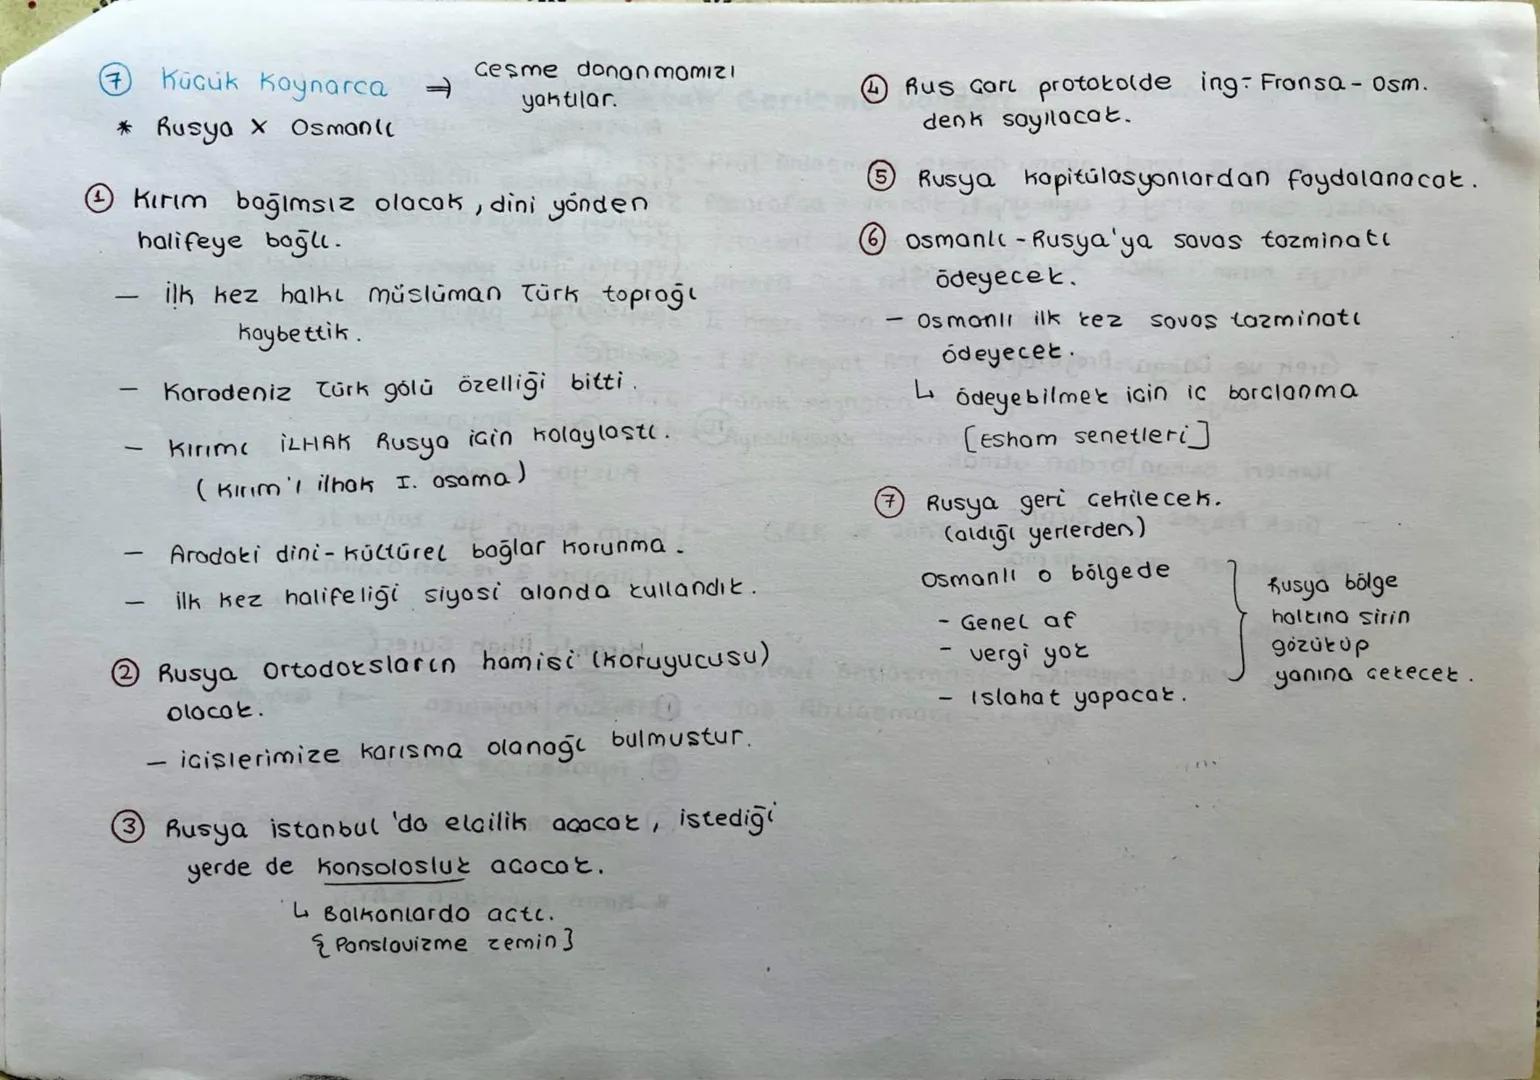 7 Küçük Kaynarca ⇒ Çeşme donanmamızı
yaktılar.
* Rusya X Osmanlı
1 Kırım bağımsız olacak, dini yönden
halifeye bağlı.
- ilk kez halkı müslüman Türk toprağı
kaybettik.
- Karadeniz Türk gölü özelliği bitti.
- Kırımı İLHAK Rusya için kolaylaştı.
(Kırım'ı ilhak I. aşama)
- Aradaki dini-kültürel bağlar korunma.
- ilk kez halifeliği siyasi alanda kullandık.
2 Rusya Ortodoksların hamisi (koruyucusu)
olacak.
- içişlerimize karışma olanağı bulmuştur.
3 Rusya istanbul'da elçilik açacak, istediği
yerde de konsolosluk açacak.
↳ Balkanlarda açtı.
{Panslavizme zemin}
4 Rus Çarı protokolde ing- Fransa - Osm.
denk sayılacak.
5 Rusya kapitülasyonlardan faydalanacak.
6 Osmanlı - Rusya'ya savaş tazminatı
ödeyecek.
- Osmanlı ilk kez savaş tazminatı
ödeyecek.
↳ ödeyebilmek için iç borçlanma
[Esham senetleri]
7 Rusya geri çekilecek.
(aldığı yerlerden)
Osmanlı o bölgede
- Genel af
- vergi yok
- Islahat yapacak.
Rusya bölge
halkına şirin
gözüküp
yanına çekecek.